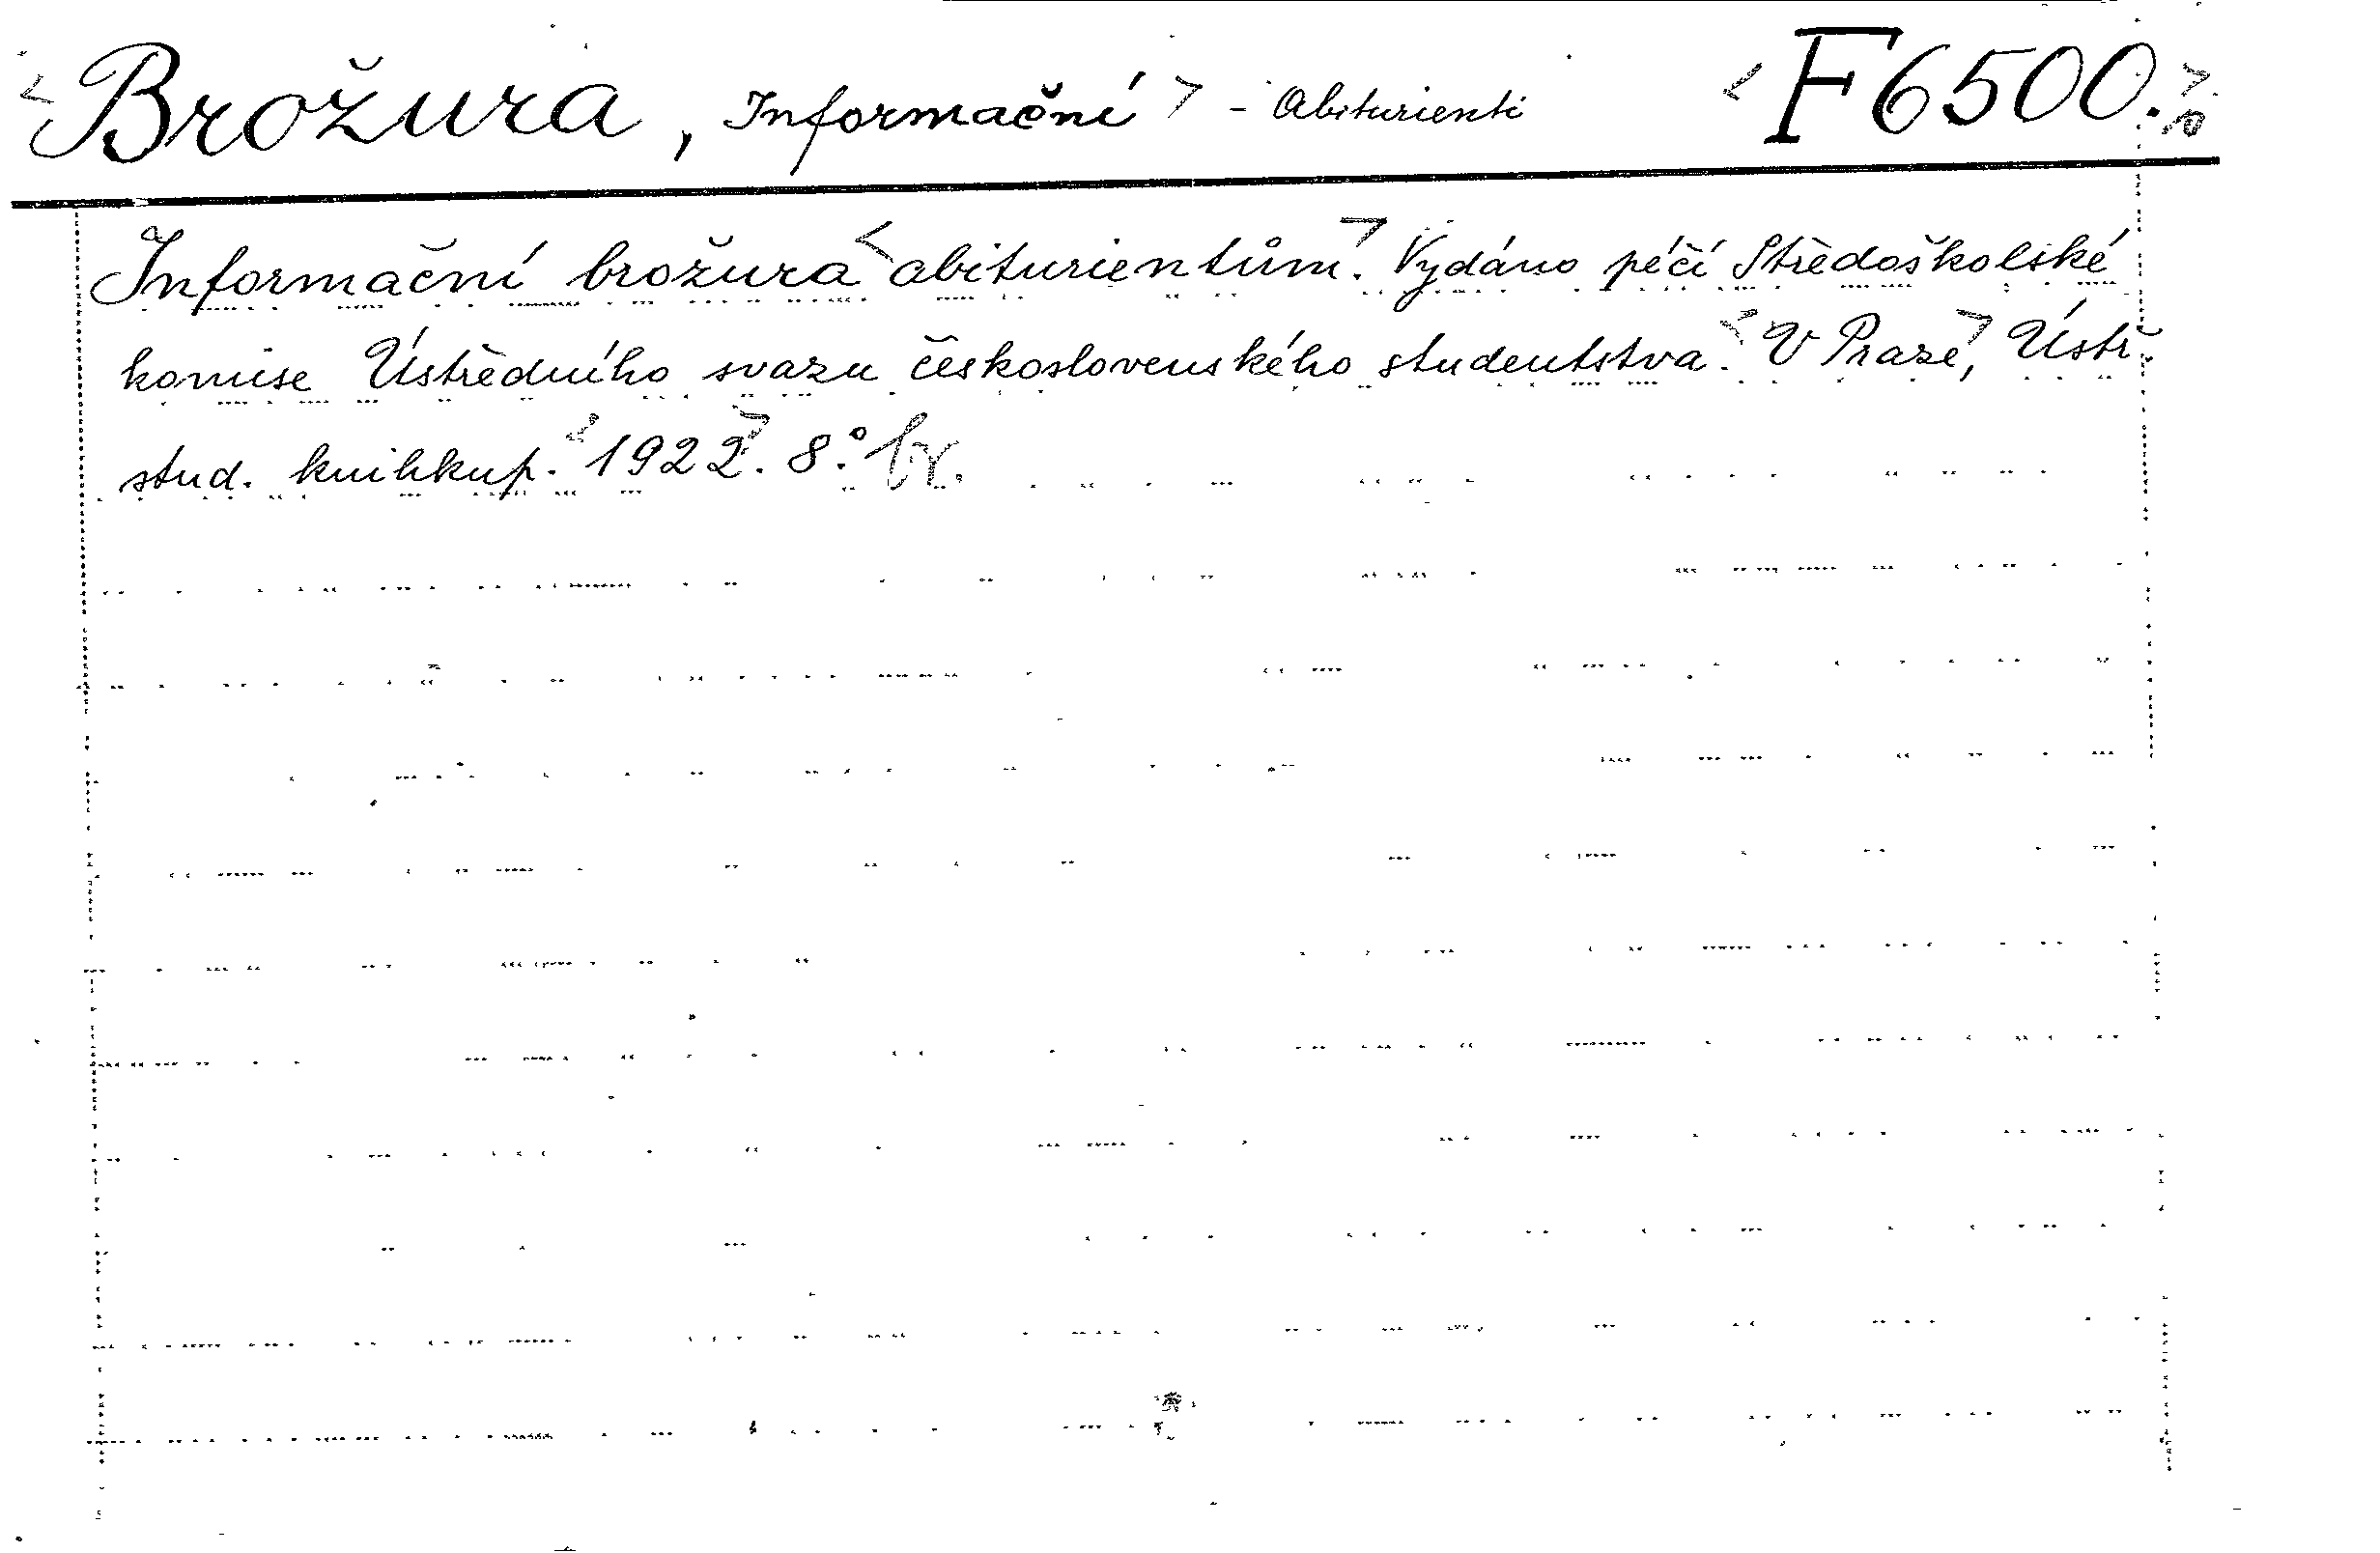 < Brožura, Informační > - Abiturienti < F 6500. >
Informační brožura < abiturientům. > Vydáno péčí Středoškolské
komise Ústředního svazu československého studentstva. < V Praze, > Ústř.
stud. knihkup. < 1922. > 8° br.